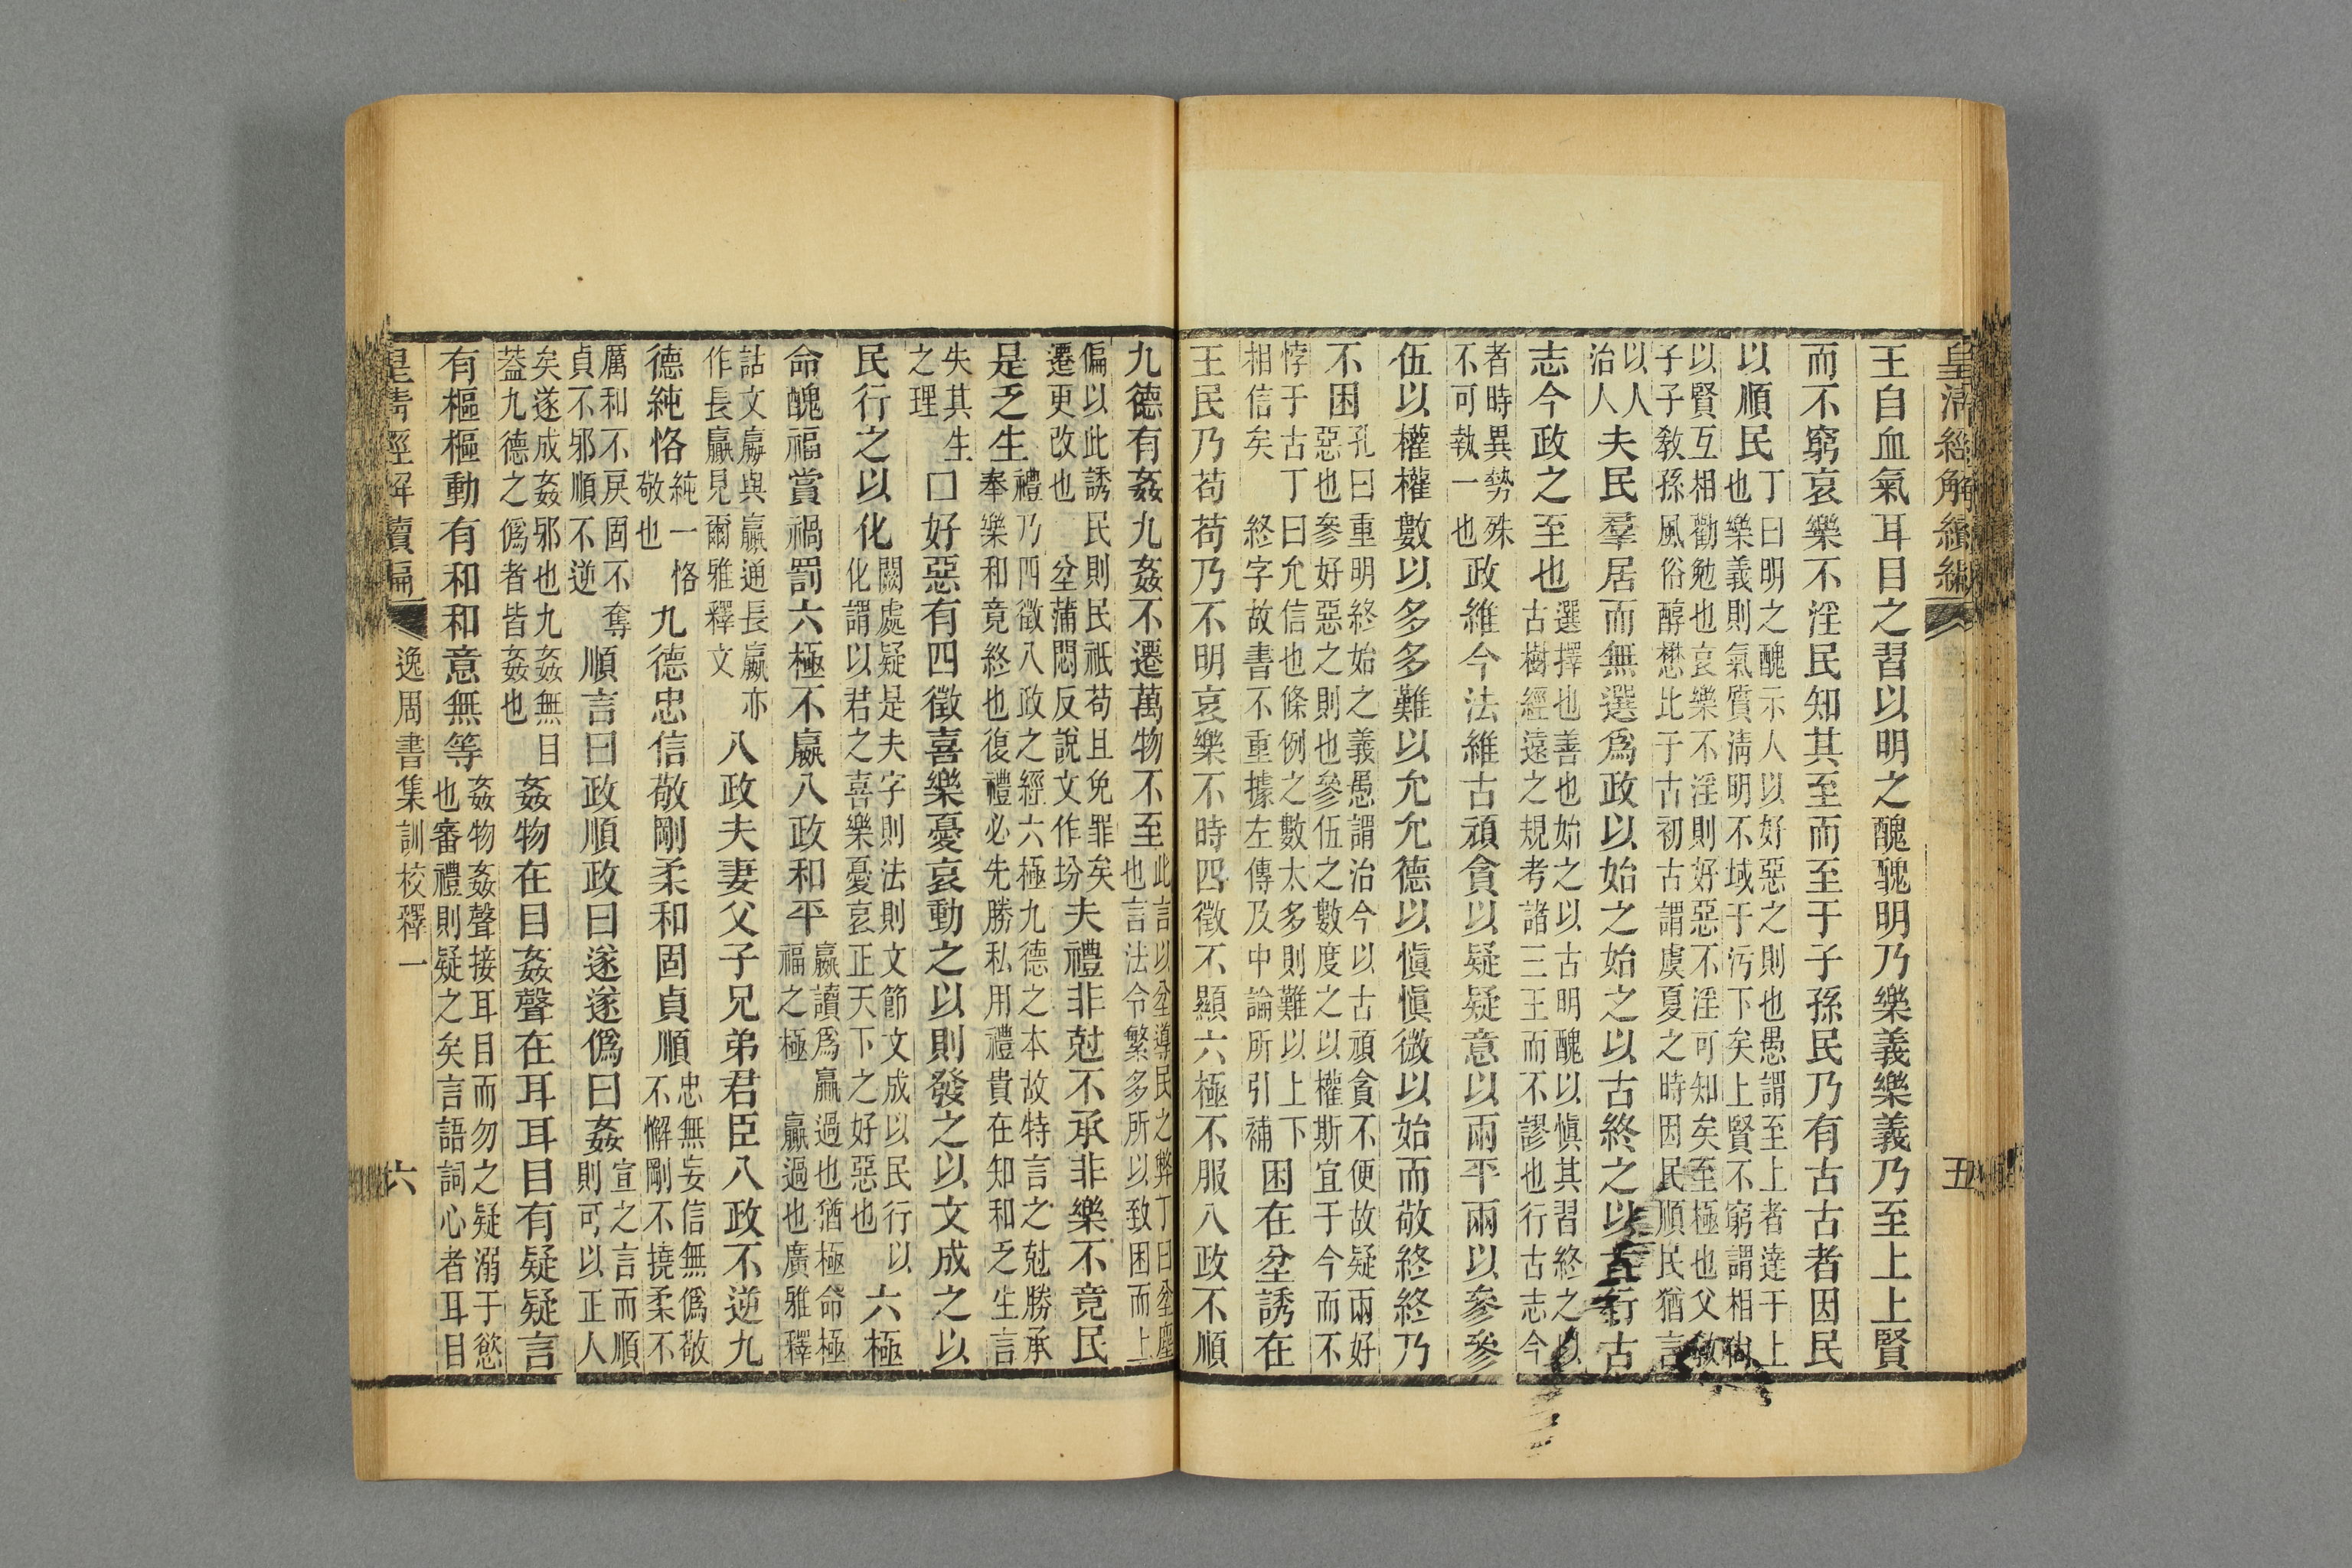 皇清經解續編 五
王自血氣耳目之習以明之醜醜明乃樂義樂義乃至上上賢
而不窮哀樂不淫民知其至而至于子孫民乃有古古者因民
以順民丁曰明之醜示人以好惡之則也愚謂至上者達于上
也樂義則氣質清明不域于污下矣上賢不窮謂相
以賢互相勸勉也哀樂不淫則好惡不淫可知矣至極也父教
子子教孫風俗醇懋比子古初古謂虞夏之時因民順民猶言
以人
治人夫民羣居而無選爲政以始之始之以古終之以古行古
志今政之至也選擇也善也始之以古明醜以愼其習終之以
古樹經遠之規考諸三王而不謬也行古志今
者時異勢殊
不可執一也政維今法維古頑貪以疑疑意以兩平兩以參參
伍以權權數以多多難以允允德以愼愼微以始而敬終終乃
不困孔曰重明終始之義愚謂治今以古頑貪不便故疑兩好
惡也參好惡之則也參伍之數度之以權斯宜于今而不
悖于古丁曰允信也條例之數太多則難以上下
相信矣終字故書不重據左傳及中論所引補困在坌誘在
王民乃苟苟乃不明哀樂不時四徵不顯六極不服八政不順
九德有姦九姦不遷萬物不至此言以坌導民之弊丁曰坌塵
也言法令繁多所以致困而上
偏以此誘民則民祇苟且免罪矣
遷更改也坌蒲悶反說文作坋夫禮非尅不承非樂不竟民
是乏生禮乃四徵八政之經六極九德之本故特言之尅勝承
奉樂和竟終也復禮必先勝私用禮貴在知和乏生言
失其生
之理口好惡有四徵喜樂憂哀動之以則發之以文成之以
民行之以化闕處疑是夫字則法則文節文成以民行以
化謂以君之喜樂憂哀正天下之好惡也六極
命醜福賞禍罰六極不嬴八政和平嬴讀爲贏過也猶極命極
福之極贏過也廣雅釋
詁文嬴與贏通長嬴亦
作長贏見爾雅釋文八政夫妻父子兄弟君臣八政不逆九
德純恪純一恪
敬也九德忠信敬剛柔和固貞順忠無妄信無僞敬
不懈剛不撓柔不
厲和不戾固不奪
貞不邪順不逆順言曰政順政曰遂遂僞曰姦宣之言而順
則可以正人
矣遂成姦邪也九姦無目
葢九德之僞者皆姦也姦物在目姦聲在耳耳目有疑疑言
有樞樞動有和和意無等姦物姦聲接耳目而勿之疑溺于慾
也審禮則疑之矣言語詞心者耳目
皇清經解續編 逸周書集訓校釋一 六